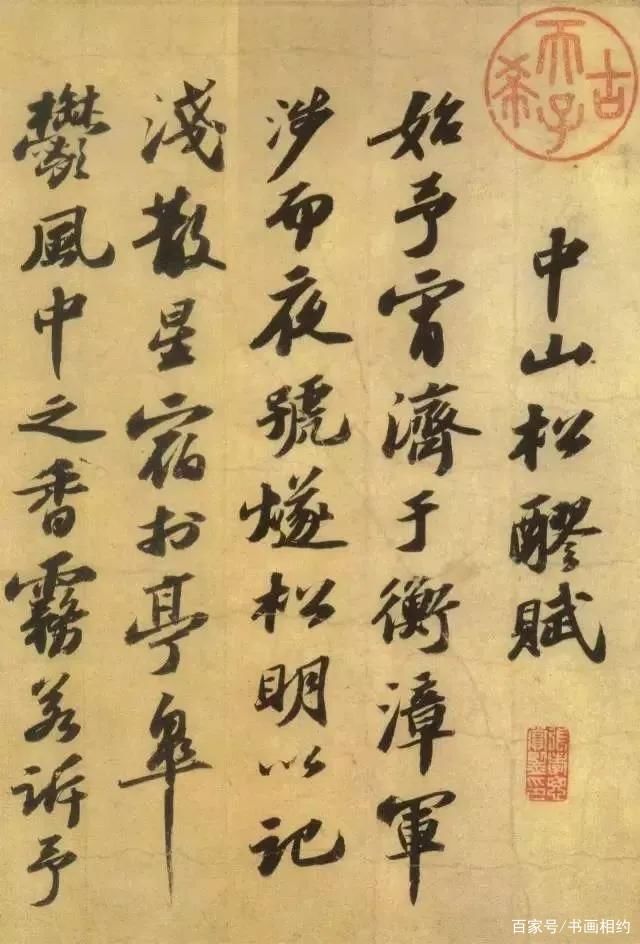 古希天子
中山松醪賦
張孝思賞鑒印
始予宵濟于衡漳軍
涉而夜號燧松明以記
淺散星宿於亭皐
欝風中之香霧若訴予
百家号/书画相约